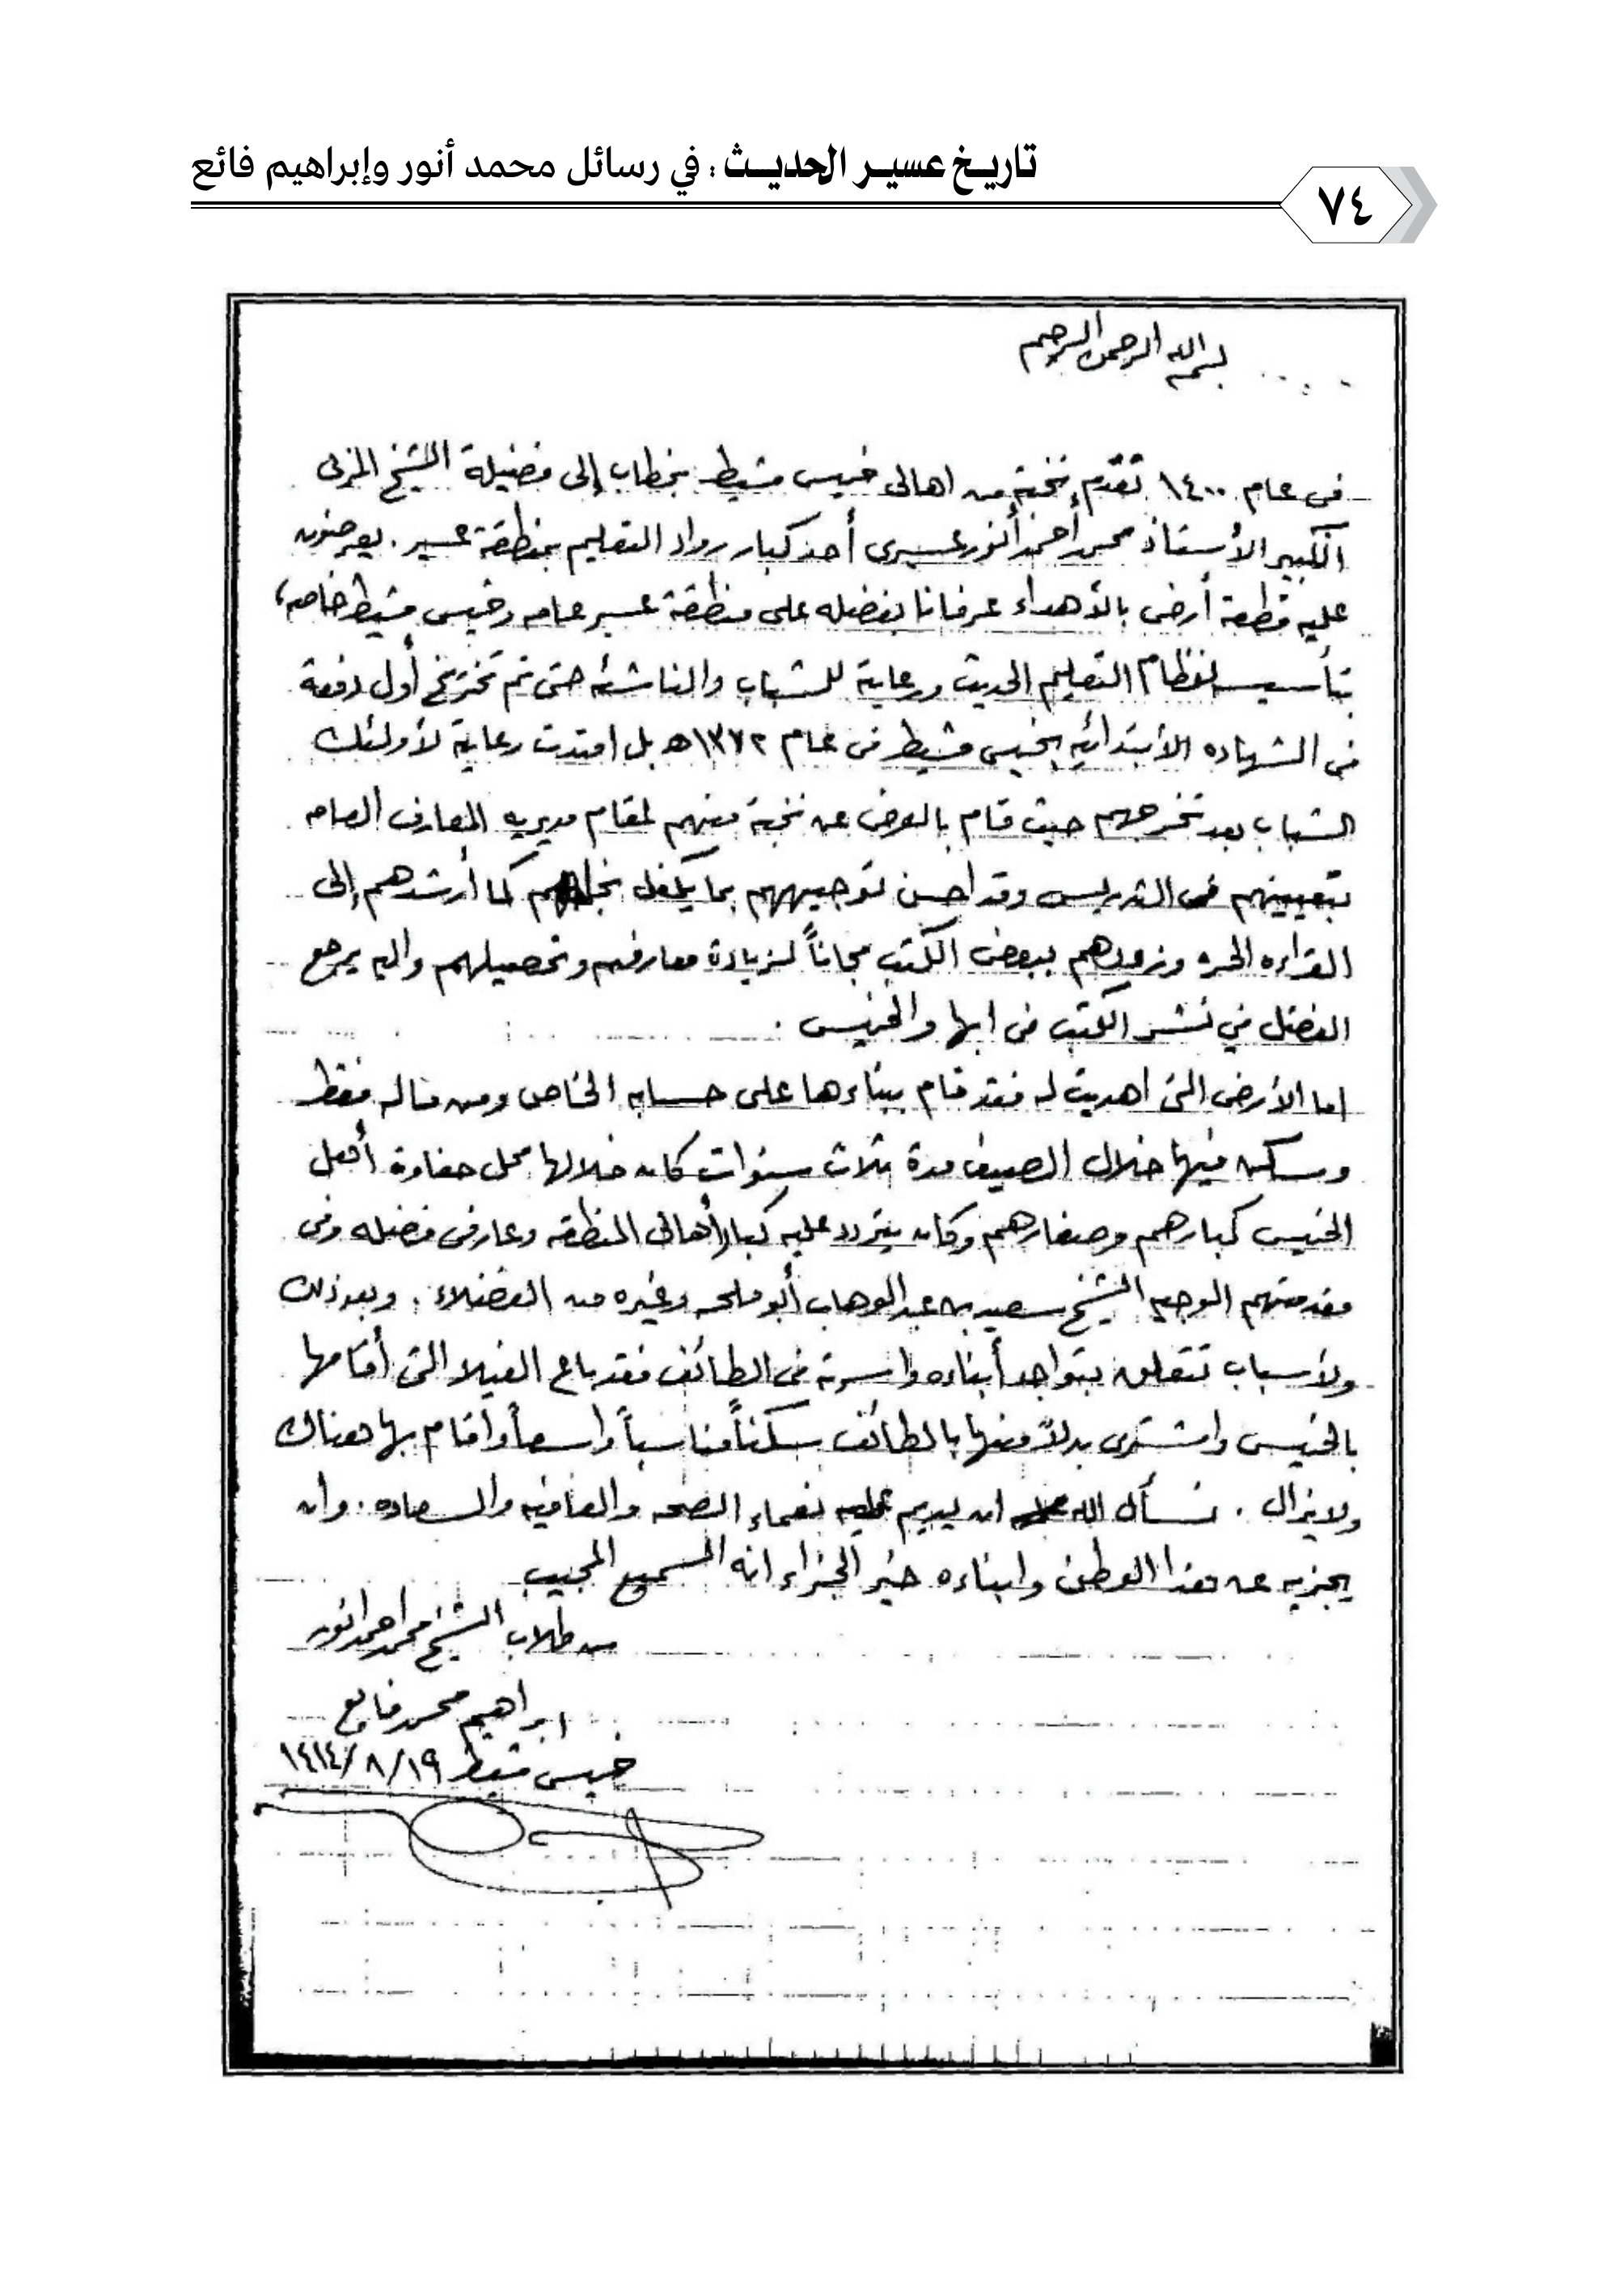 تاريخ عسير الحديث : في رسائل محمد أنور وإبراهيم فائع
٧٤
بسم الله الرحمن الرحيم
فى عام ١٤٠٠ تقدم نخبة من اهالى خميس مشيط بخطاب إلى فضيلة الشيخ المربى
الكبير الأستاذ محمد أحمد أنور عسيرى أحد كبار رواد التعليم بمنطقة عسير . يعرضون
عليه قطعة أرض بالأهداء عرفانا بفضله على منطقة عسير عامه وخميس مشيط خاصه ،
بتأسيس لنظام التعليم الحديث ورعاية للشباب والناشئه حتى تم تخريج أول دفعة
فى الشهاده الأبتدائيه بخميس مشيط فى عام ١٣٧٢هـ بل امتدت رعاية لأولئك
الشباب بعد تخرجهم حيث قام بالعرض عن نخبة منهم لمقام مديريه المعارف العامه
بتعيينهم فى التدريس وقد احسن توجيههم بما يكفل نجاحهم كما أرشدهم إلى
القراءه الحره وزودهم ببعض الكتب مجاناً لزيادة معارفهم وتحصيلهم واليه يرجع
الفضل في نشر الكتب فى ابها والخميس .
اما الأرض التى اهديت له فقد قام ببناءها على حسابه الخاص ومن ماله فقط
وسكن فيها خلال الصيف مدة ثلاث سنوات كان خلالها محل حفاوة أهل
الخميس كبارهم وصغارهم وكان يتردد عليه كبار أهالى المنطقه وعارفى فضله وفى
مقدمتهم الوجيه الشيخ سعيد بن عبد الوهاب أبو ملحه وغيره من الفضلاء . وبعد ذلك
ولأسباب تتعلق بتواجد أبناءه واسرته فى الطائف فقد باع الفيلا التى أقامها
بالخميس واشترى بدلاً منها بالطائف سكناً مناسباً واسعاً وأقام بها هناك
ولايزال . نسأل الله ان يديم عليه نعماء الصحه والعافيه والسعاده . وان
يجزيه عن هذا الوطن وابناءه خير الجزاء انه السميع المجيب
من طلاب الشيخ محمد احمد انور
ابراهيم محمد فايع
خميس مشيط ١٤١٤/٨/١٩